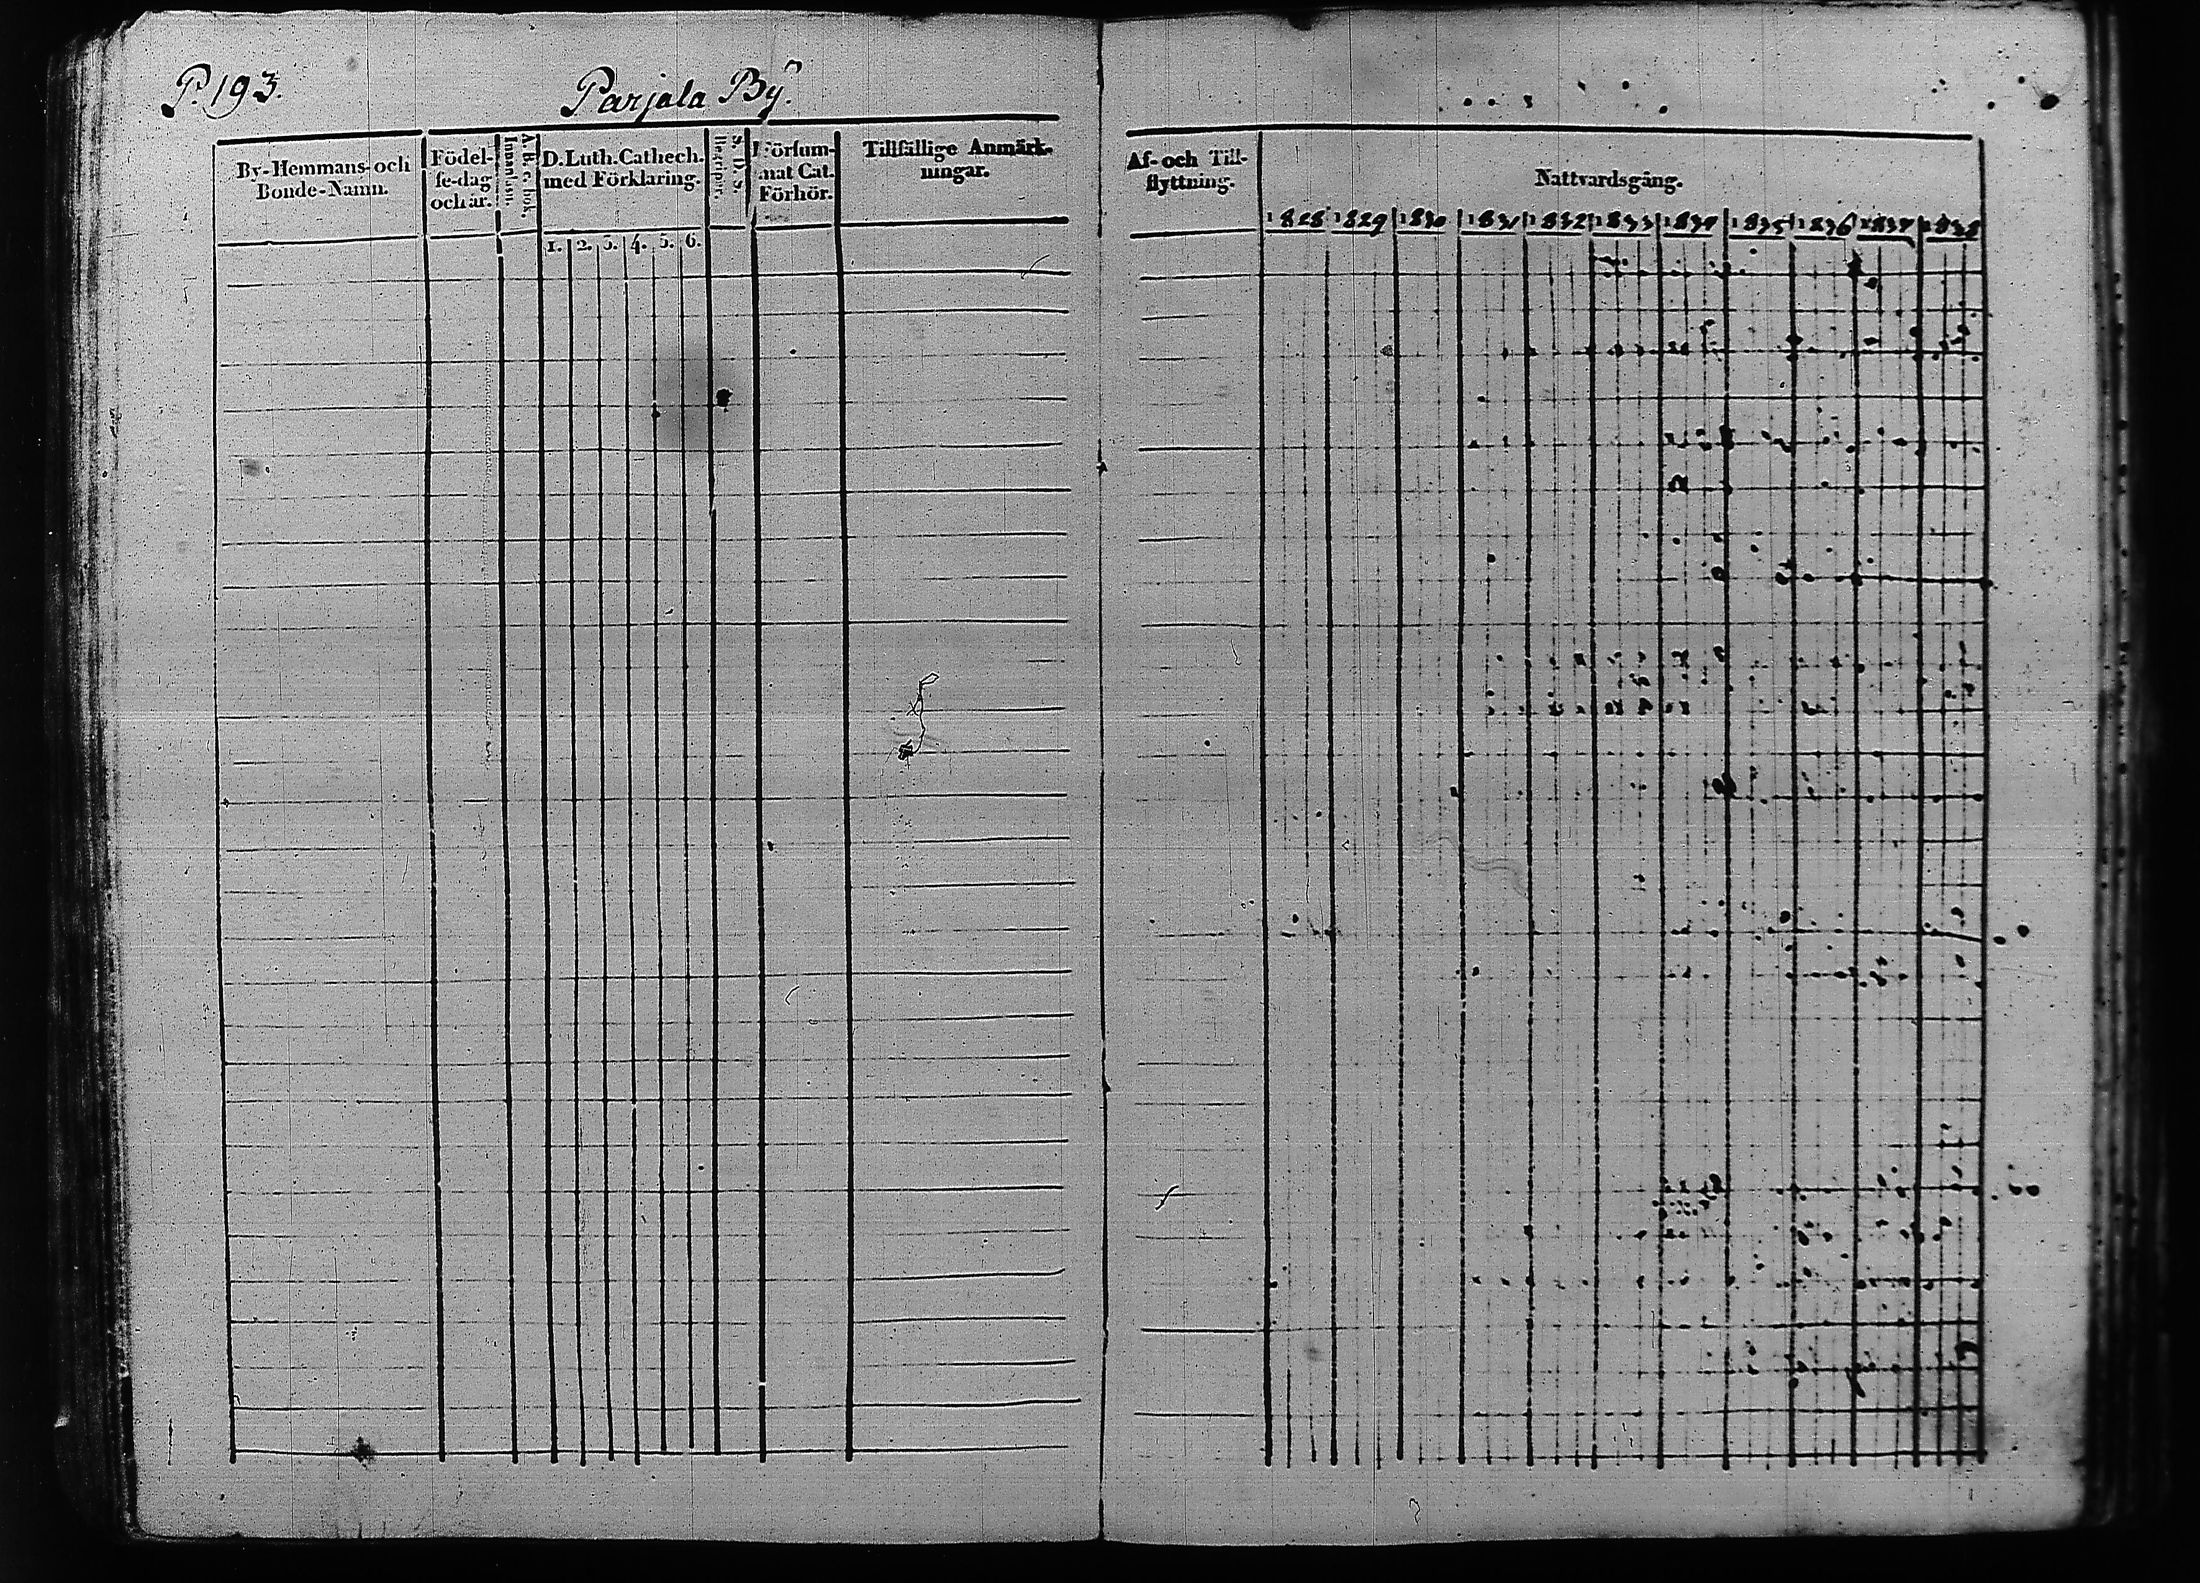 P. 193.
Parjala By.
By-Hemmans- och
Bonde-Namn.
Födel-
se-dag
och år.
Innanläs.
A. B. c. bok.
D. Luth. Cathech.
med Förklaring.
1. 2. 3. 4. 5. 6.
Begripit.
Försum-
mat Cat.
Förhör.
Tillfällige Anmärk-
ningar.
Af- och Till-
flyttning.
Nattvardsgång.
1828 1829 1830 1831 1832 1833 1834 1835 1836 1837 1838